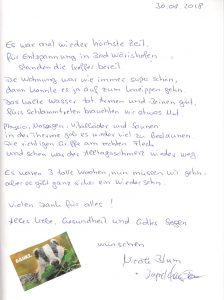 30.08.2018
Es war mal wieder höchste Zeit.
Für Entspannung in Bad Wörishofen
standen die Koffer bereit
Die Wohnung war wie immer supa schön,
dann konnte es ja auf zum kneippen gehn.
Das kalte Wasser tat Armen und Beinen gut,
fürs Schlammtreten brauchten wir etwas Mut
Physio, Massagen, Bäder und Saunen
in der Therme gab es wieder viel zu bestaunen
Die richtigen Griffe am rechten Fleck
und schon war der Alltagsschmerz wieder weg.
Es waren 3 tolle Wochen, nun müssen wir gehn.
aber es gibt ganz sicher ein Wiedersehn.
Vielen Dank für alles!
Alles Liebe, Gesundheit und Gottes Segen
wünschen